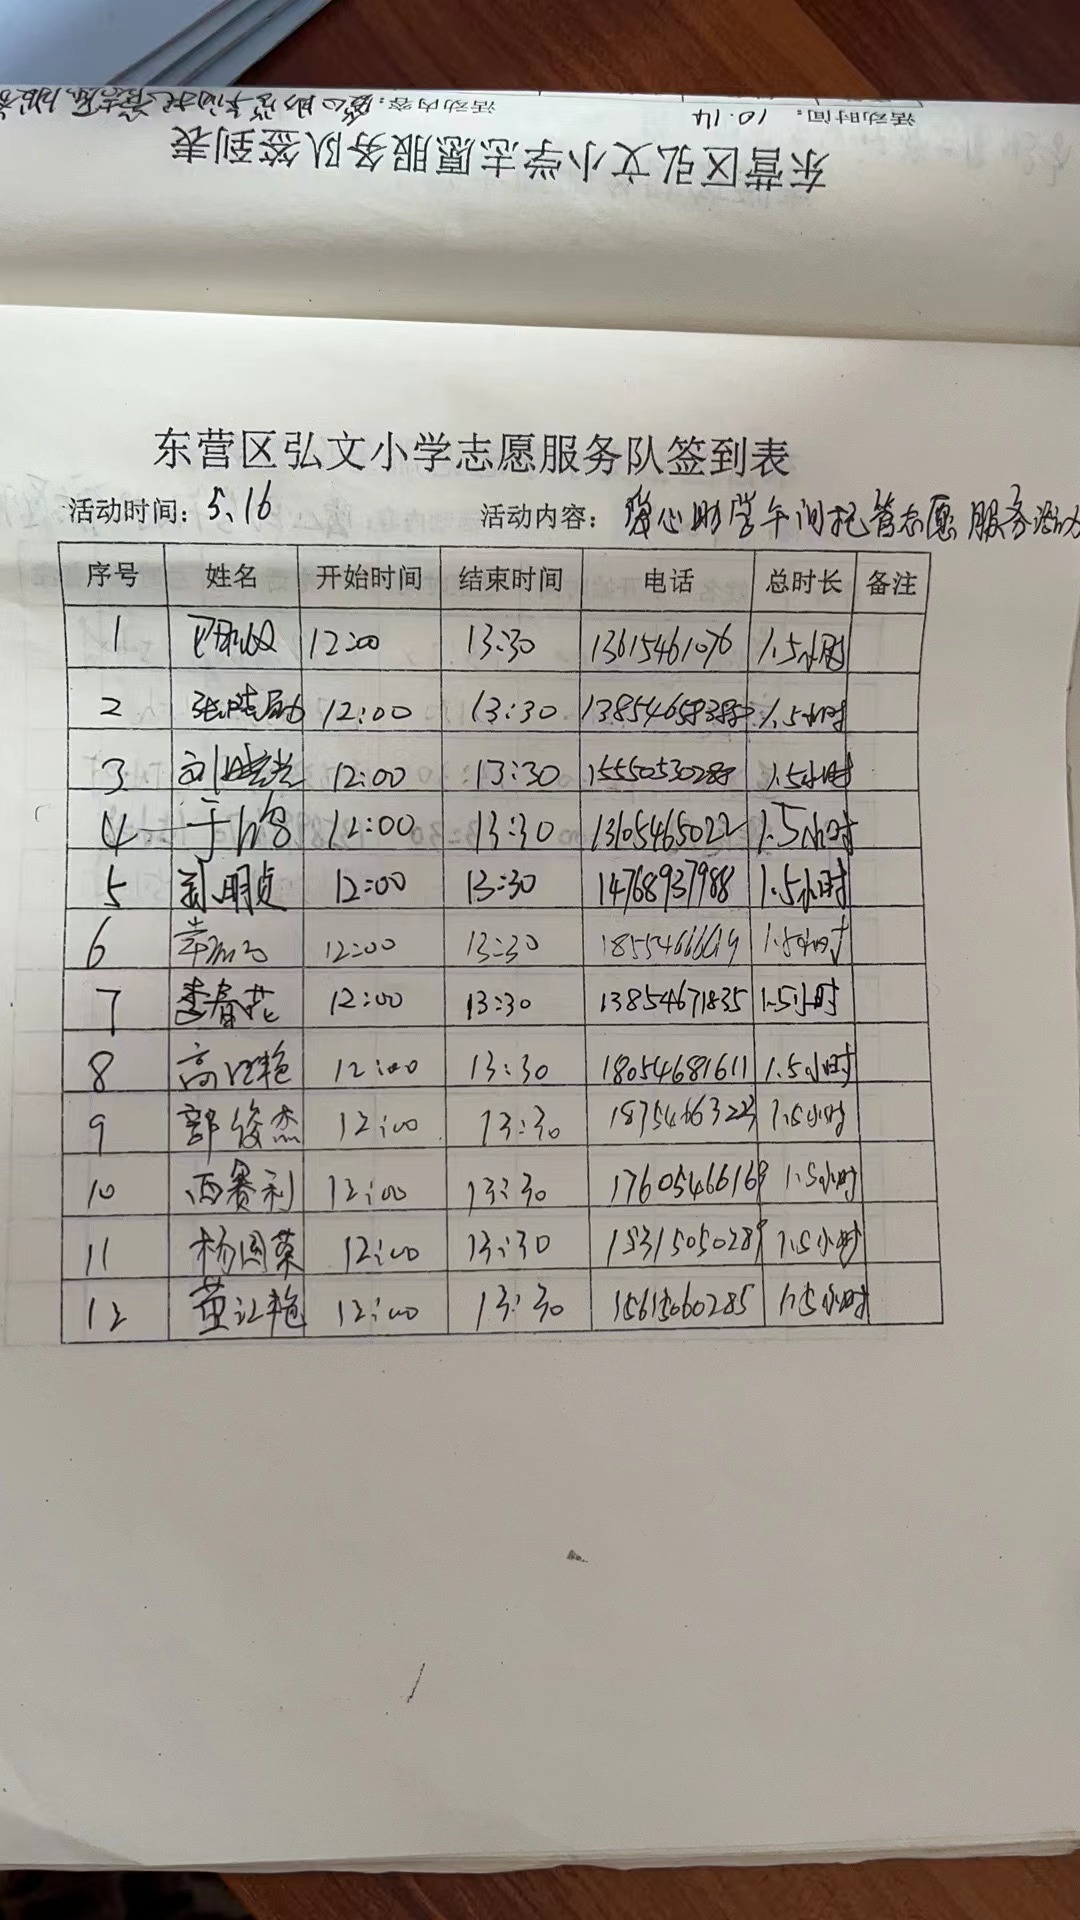 活动时间: 10.14 活动内容:
东营区弘文小学志愿服务队签到表
东营区弘文小学志愿服务队签到表
活动时间: 5、16 活动内容: 心助学午间托管志愿服务活动
序号 姓名 开始时间 结束时间 电话 总时长 备注
1 12:00 13:30 13615461076 1.5小时
2 12:00 13:30 1.5小时
3 刘晓光 12:00 13:30 1.5小时
4 于 12:00 13:30 13105465022 1.5小时
5 刘明贞 12:00 13:30 14768937988 1.5小时
6 12:00 13:30 1.5小时
7 李春花 12:00 13:30 13854671835 1.5小时
8 高江艳 12:00 13:30 18054681611 1.5小时
9 郭俊杰 12:00 13:30 1.5小时
10 西赛利 12:00 13:30 17605466169 1.5小时
11 杨国荣 12:00 13:30 15315050289 1.5小时
12 董江艳 12:00 13:30 15615060285 1.5小时